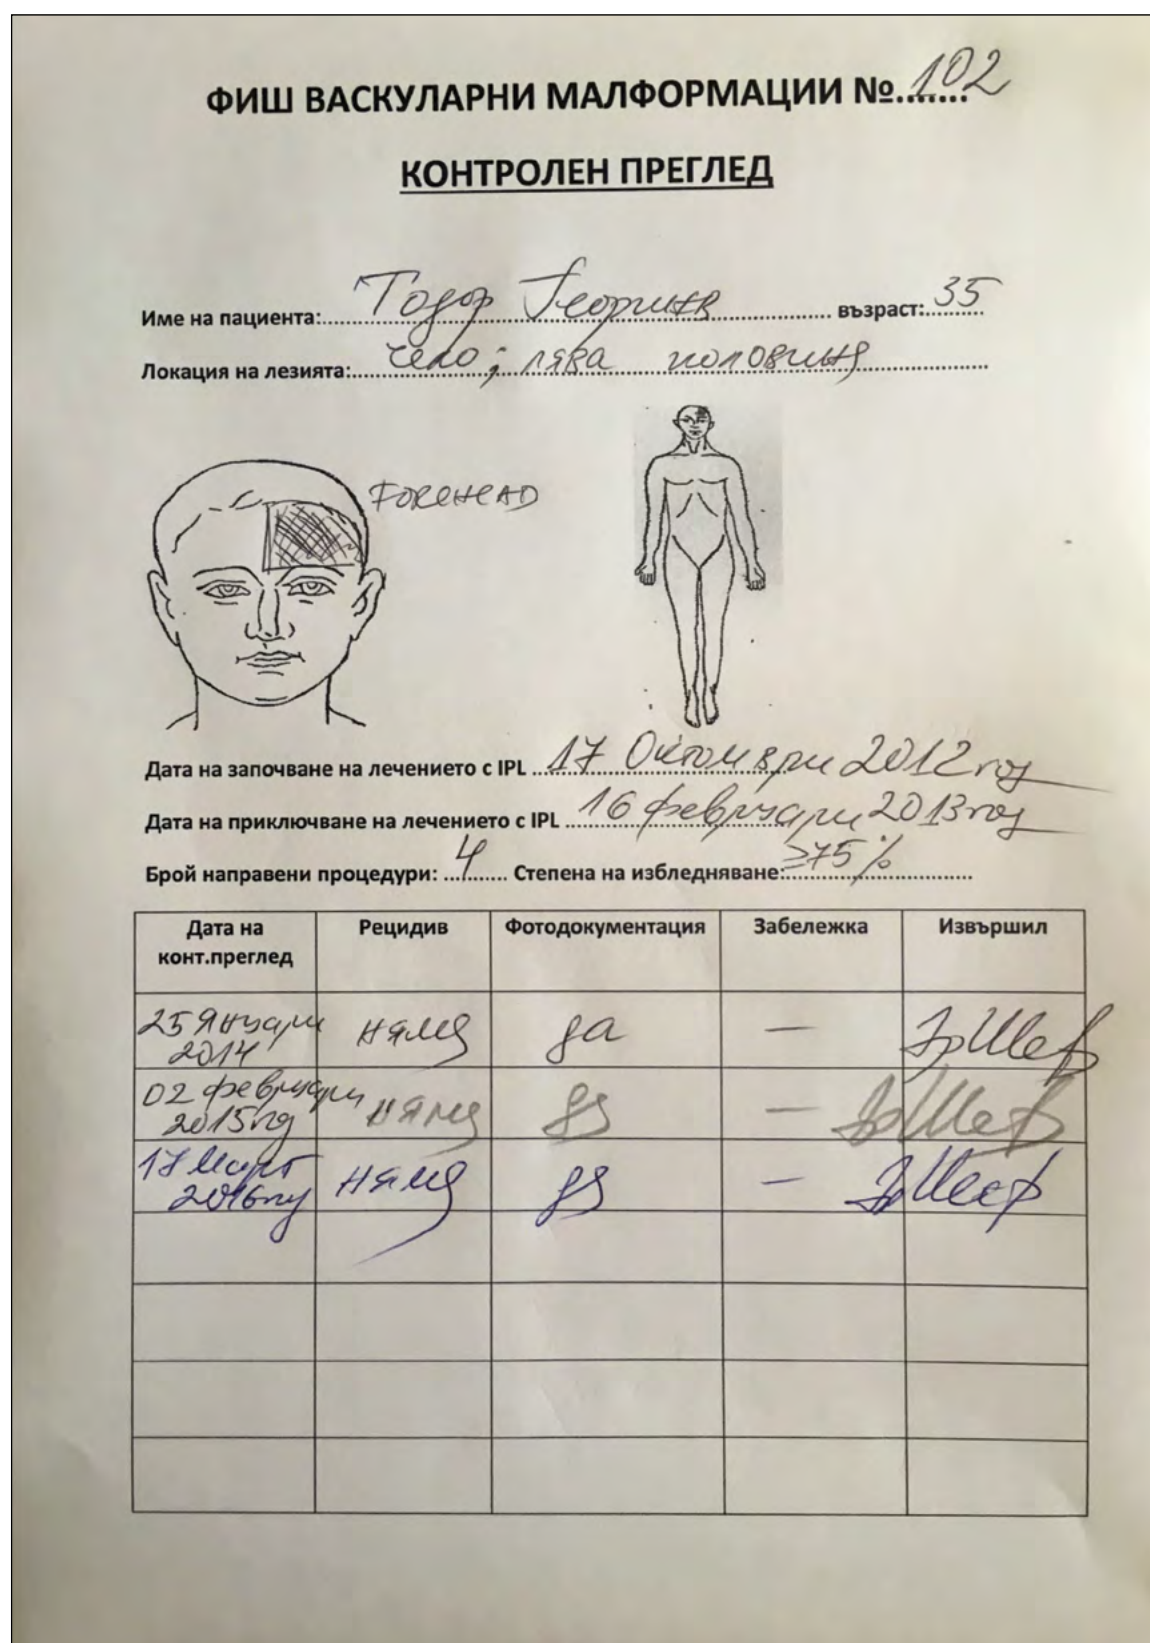 ФИШ ВАСКУЛАРНИ МАЛФОРМАЦИИ №.......102
КОНТРОЛЕН ПРЕГЛЕД
Име на пациента: Тодор Георгиев възраст: 35
Локация на лезията: чело; лява половина
FOREHEAD
Дата на започване на лечението с IPL 17 Октомври 2012 год
Дата на приключване на лечението с IPL 16 февруари 2013 год
Брой направени процедури: 4 Степена на избледняване: ≥75%
Дата на конт.преглед Рецидив Фотодокументация Забележка Извършил
25 Януари 2014 няма да —
02 февруари 2015 год няма да —
17 Март 2016 няма да —